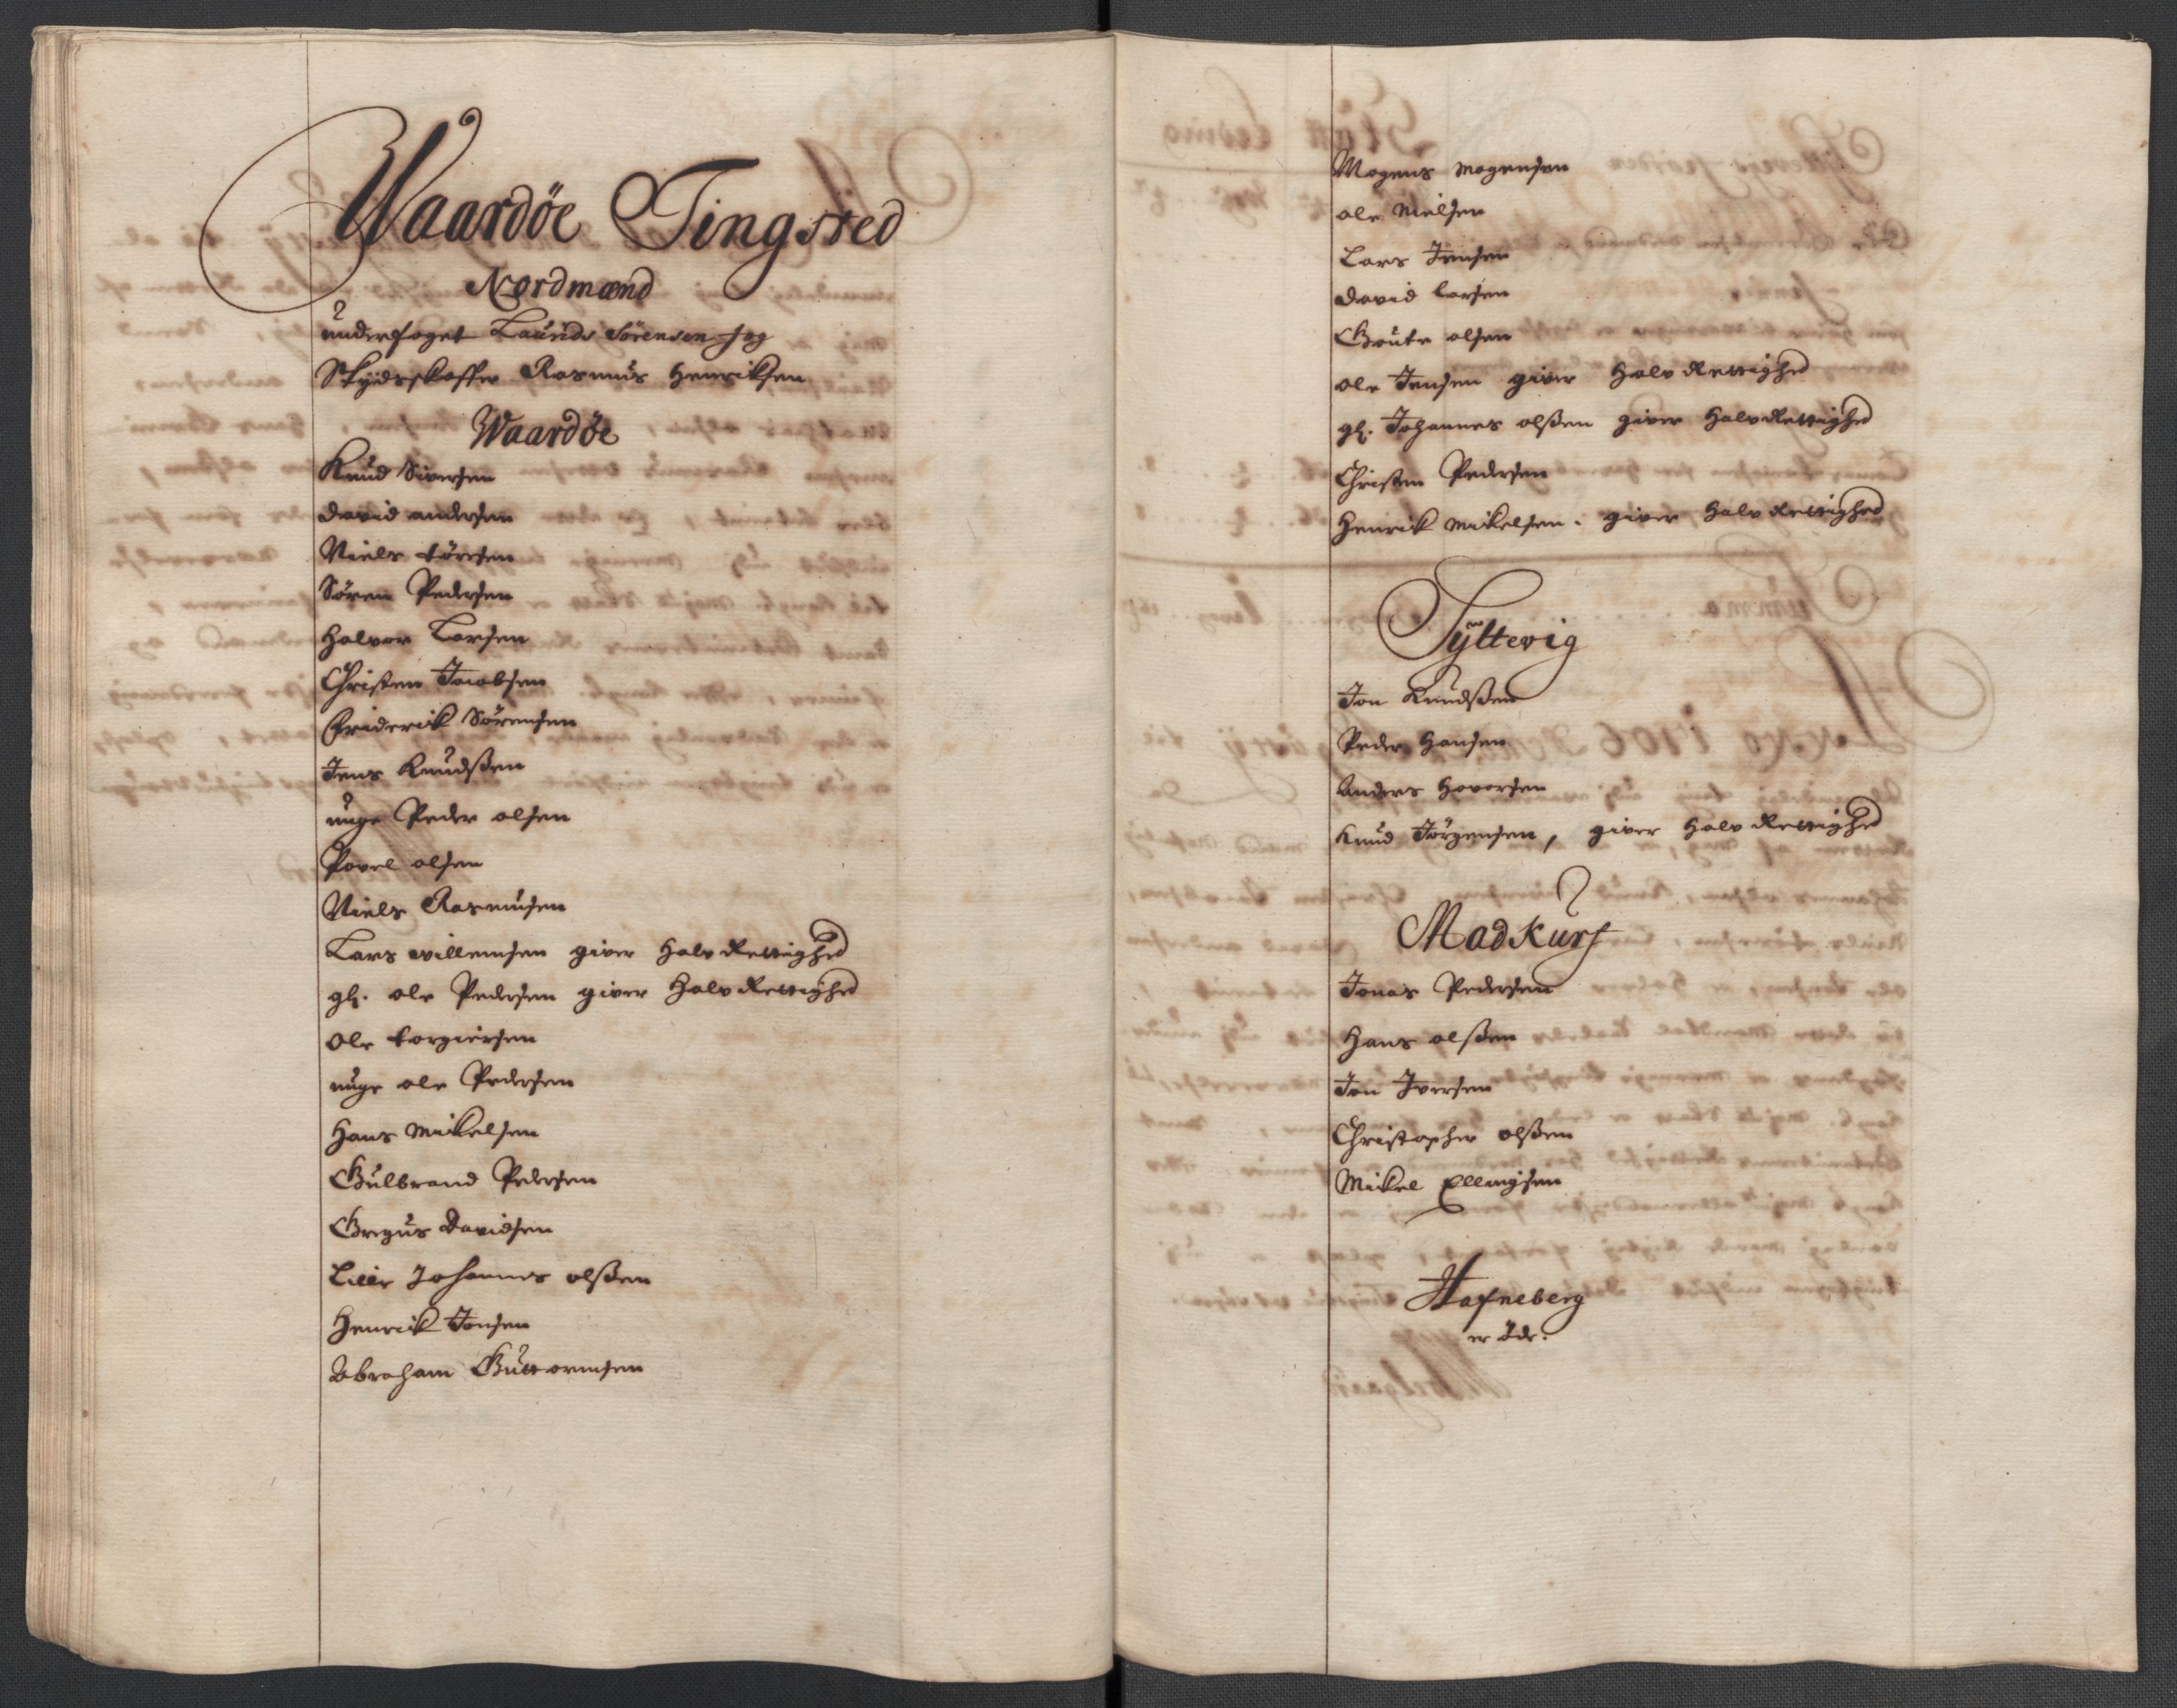 Waardøe Tingsted
Nordmænd
underfoget Laurids Sörensen og
Skydsskaffer Rasmus Henriksen
Waardøe
Knud Siversen
david andersen
Niels törresen
Sören Pedersen
Halvor Larsen
Christen Jacobsen
Friderik Sörensen
Jens Knudsßen
unge Peder olsen
Povel olsen
Niels Rasmusen
Lars willemsen giver Halv Rettighed
gl. ole Pedersen giver Halv Rettighed
Ole torgiersen
unge ole Pedersen
Hans Mickelsen
Gulbrand Pedersen
Gregus Davidsen
Lille Johannes olßen
Henrik Jonsen
Abraham Guttormsen
Mogens Mogensen
ole Nielsen
Lars Jensen
david larsen
Goute olsen
ole Jensen giver Halv Rettighed
gl. Johannes olßen giver Halv Rettighed
Christen Pedersen
Henrik Mickelsen. giver Halv Rettighed
Syltevig
Jon Knudsßen
Peder Hansen
Anders Hovorsen
Knud Jörgensen, giver Halv Rettighed
Madkurf
Jonas Pedersen
Hans olßen
Jon Iversen
Christopher olßen
Mickel Ellingsen
Hafneberg
er öde.